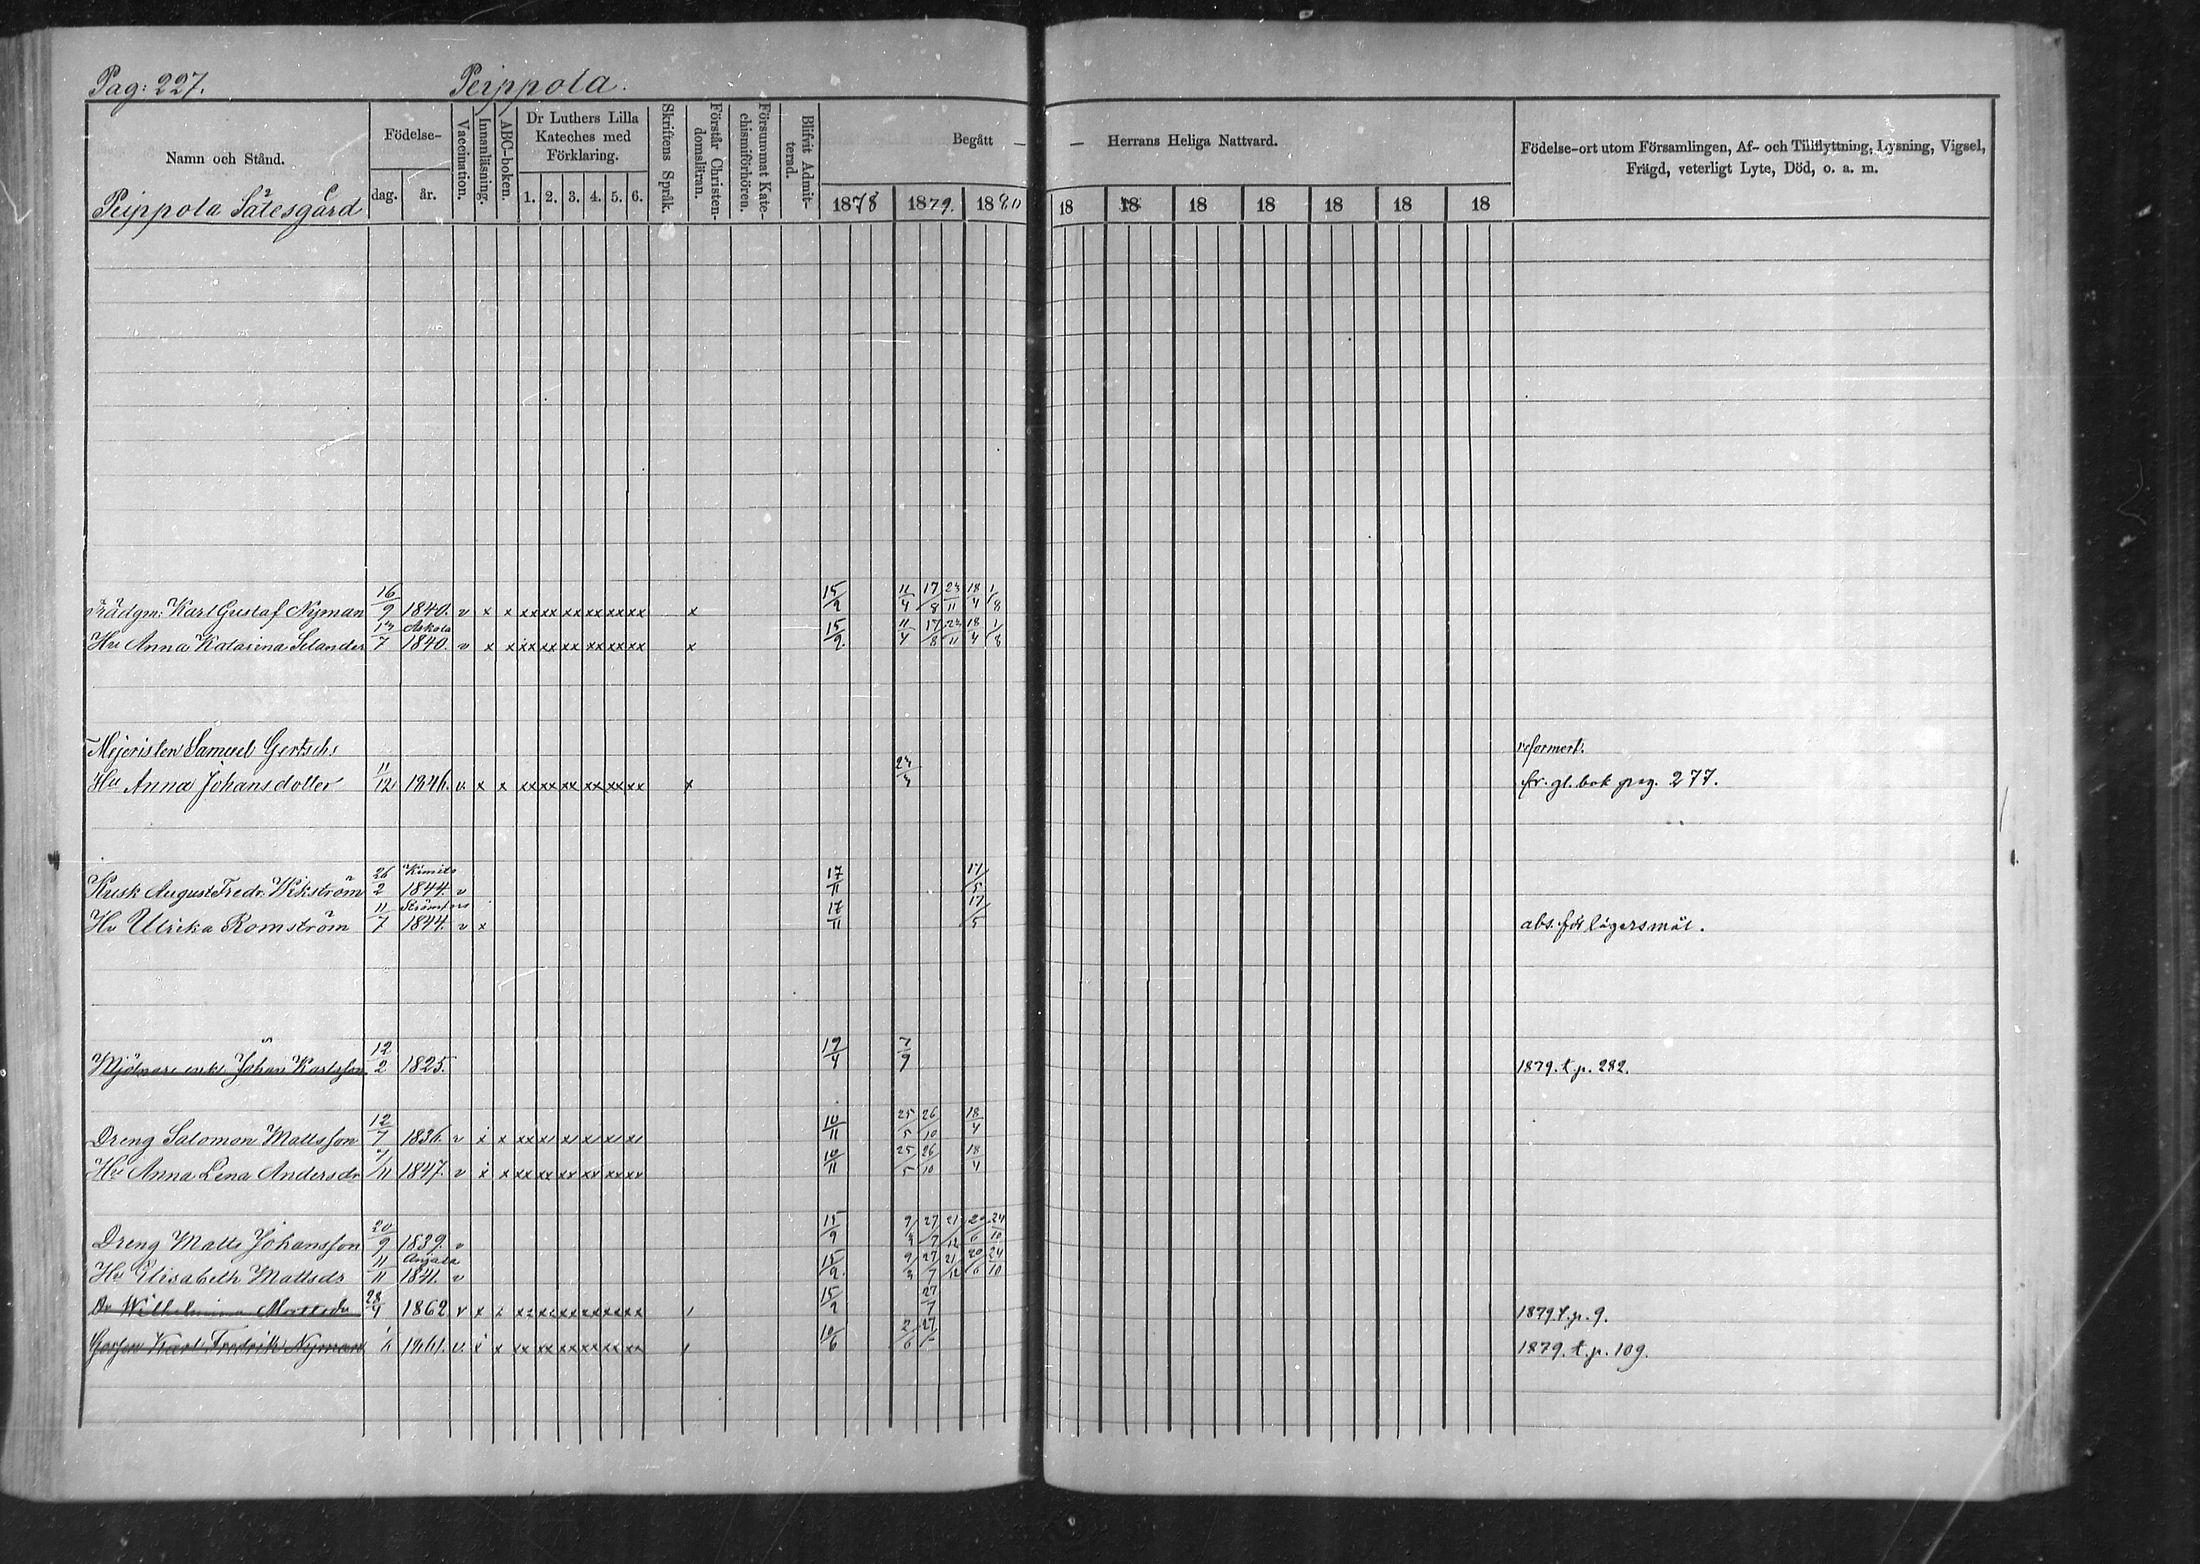 Pag: 227. Peippola.
Namn och Stånd. Födelse- dag. år. Vaccination. Innanläsning. ABC-boken. Dr Luthers Lilla Kateches med Förklaring. 1. 2. 3. 4. 5. 6. Skriftens Språk. Förstår Christendomsläran. Försummat Katechismiförhören. Blifvit Admitterad. Begått — — Herrans Heliga Nattvard. Födelse-ort utom Församlingen, Af- och Tillflyttning, Lysning, Vigsel, Frägd, veterligt Lyte, Död, o. a. m.
1878 1879. 1880 18 18 18 18 18 18 18
Peippola Sätesgård
Trädgm: Karl Gustaf Nyman 16/9 1840. v x x xx xx xx xx xx xx x 15/9 11/4 17/8 23/11 18/4 1/8
Askola
Hu Anna Katarina Selander 13/7 1840. v x x xx xx xx xx xx xx x 15/9 11/4 17/8 23/11 18/4 1/8
Mejeristen Samuel Gertsch reformert.
Hu Anna Johansdotter 11/12 1846. v. x x xx xx xx xx xx xx x fr. gl. bok pag. 277.
Kimito
Kusk August Fredr. Wikström 26/2 1844. v 17/11 17/5
Strömfors
Hu Ulrika Romström 11/7 1844. v x 17/11 17/5 abs. för lägersmål.
Mjölnare enkl. Johan Karlsson 12/2 1825. 7/9 1879. t. p. 282.
Dreng Salomon Mattsson 12/7 1836. v x x 10/11 25/5 26/10 18/4
Hu Anna Lena Andersdr 1847. v x x xx xx xx xx xx xx 10/11 25/5 26/10 18/4
Dreng Matts Johansson 20/9 1839. v 15/9 27/7 21/12 20/6 24/10
Anjala
Hu Elisabeth Mattsdr 11/11 1841. v 15/9 27/7 21/12 20/6 24/10
Dr Wilhelmina Mattsdr 28/4 1862 v x 27/7 1879 t. p. 9.
Gossen Karl Fredrik Nyman 1861. v. x x xx xx xx xx xx xx 10/6 1879. t. p. 109.